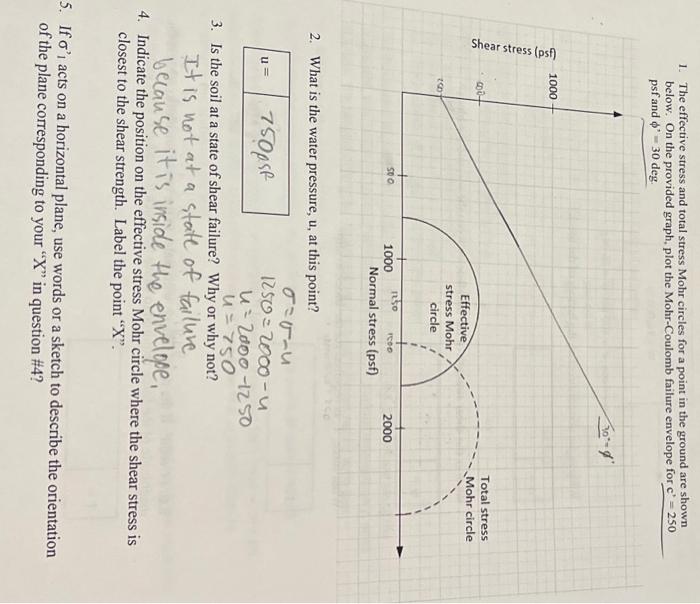 1. The effective stress and total stress Mohr circles for a point in the ground are shown
below. On the provided graph, plot the Mohr-Coulomb failure envelope for c' = 250
psf and ϕ' = 30 deg.
30° = ϕ'
Shear stress (psf)
1000
500
250
Effective
stress Mohr
circle
Total stress
Mohr circle
500
1000
1250
1500
2000
Normal stress (psf)
2. What is the water pressure, u, at this point?
u =
750psf
σ = σ - u
1250 = 2000 - u
u = 2000 - 1250
u = 750
3. Is the soil at a state of shear failure? Why or why not?
It is not at a state of failure
because it is inside the envelope.
4. Indicate the position on the effective stress Mohr circle where the shear stress is
closest to the shear strength. Label the point "X".
5. If σ'1 acts on a horizontal plane, use words or a sketch to describe the orientation
of the plane corresponding to your "X" in question #4?